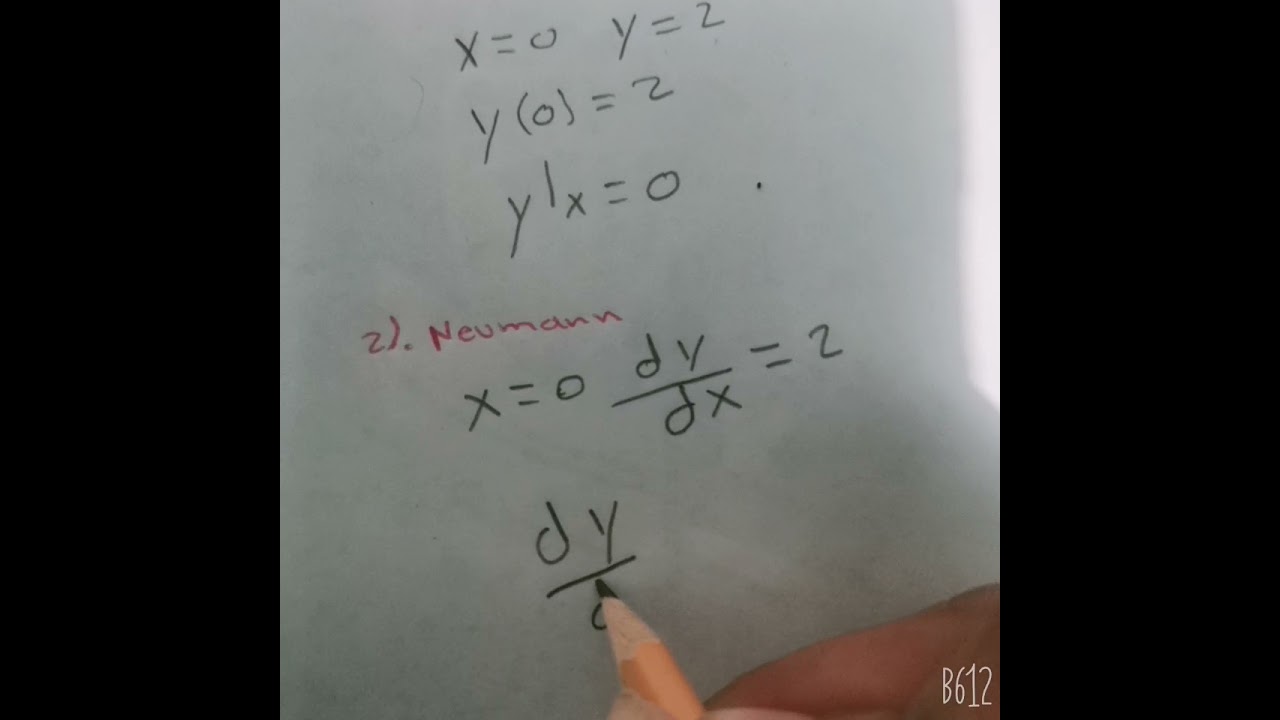 x=0 y=2
y(0)=2
y|x=0
2). Neumann
x=0 dy/dx=2
dy
B612